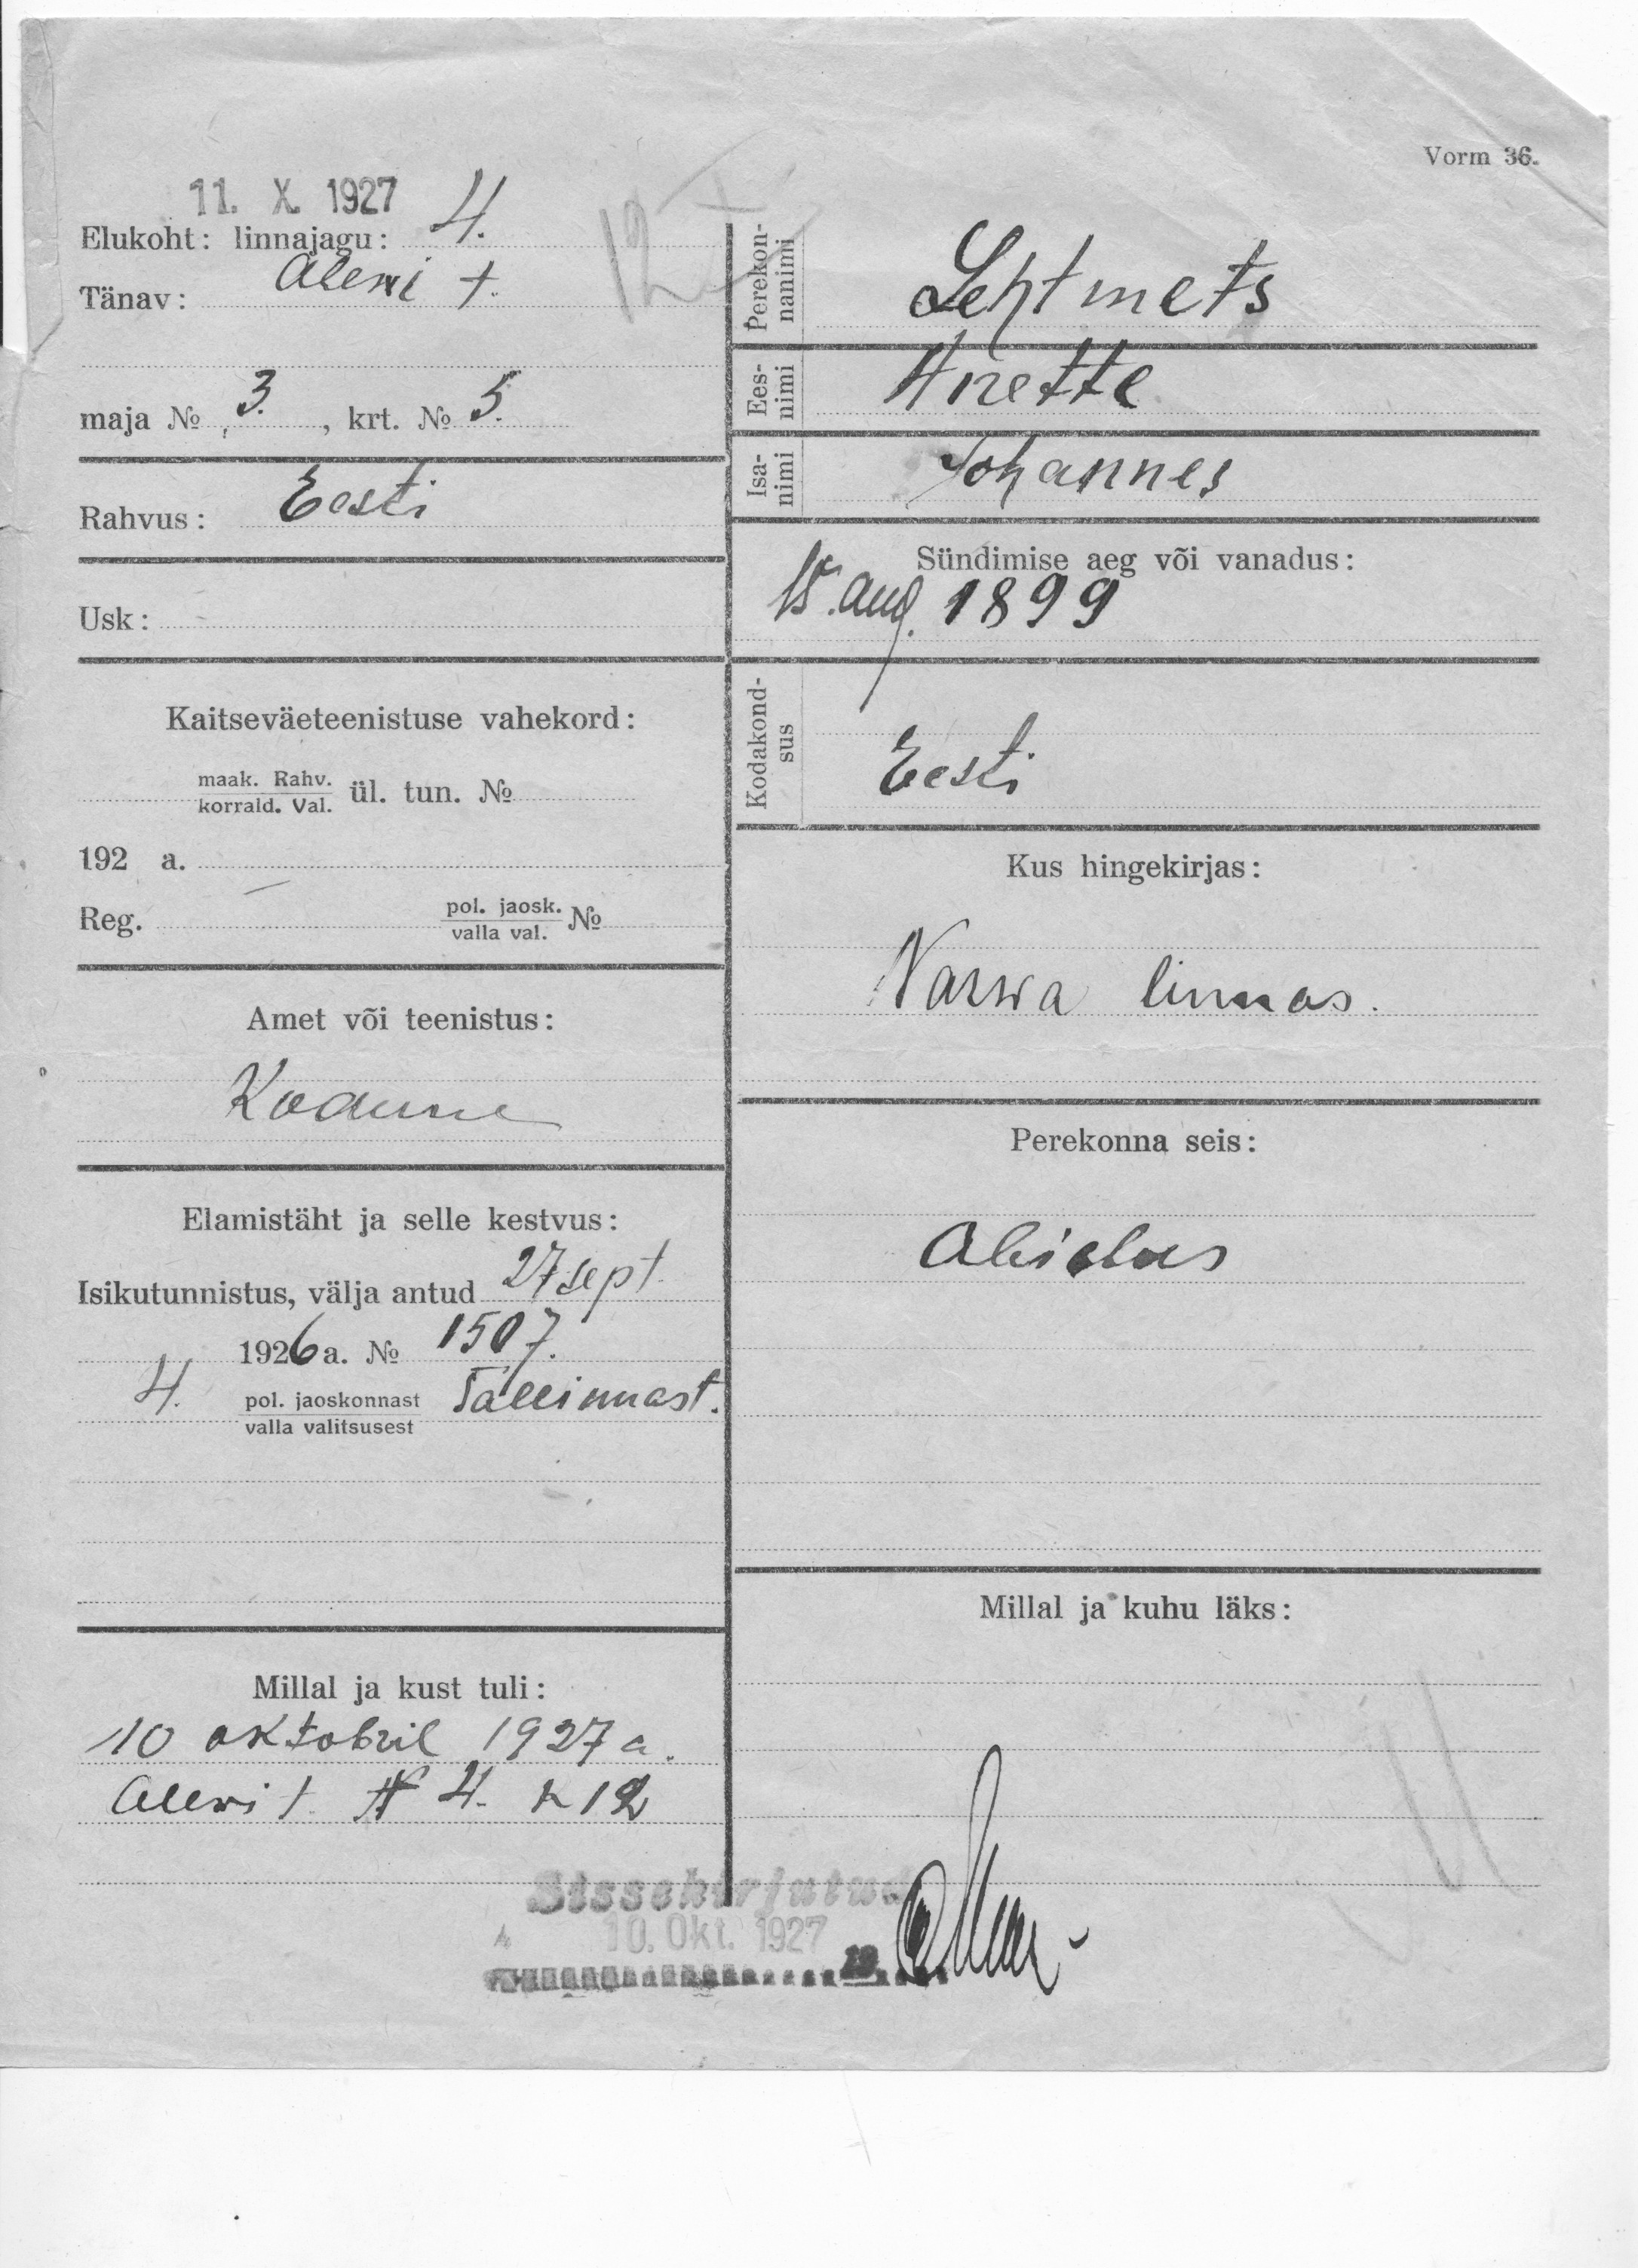 Vorm 36.
11. X. 1927
Elukoht: linnajagu: 4.
Tänav: Alewi t.
maja № 3. , krt. № 5.
Rahvus: Eesti
Usk: -
Kaitseväeteenistuse vahekord:
maak. Rahv.
korrald. Val. ül. tun. №
192 a.
Reg. pol. jaosk.
valla val. №
Amet või teenistus:
Kodune
Elamistäht ja selle kestvus:
Isikutunnistus, välja antud 27 sept.
1926 a. № 1507.
4. pol. jaoskonnast Tallinnast.
valla valitsusest
Millal ja kust tuli:
10 oktobril 1927 a.
Alewi t. № 4. k 12
Perekon-
nanimi Lehtmets
Ees-
nimi Anette
Isa-
nimi Johannes
Sündimise aeg või vanadus:
15. aug. 1899
Kodakond-
sus Eesti
Kus hingekirjas:
Narwa linnas.
Perekonna seis:
Abielus
Millal ja kuhu läks:
Sissekirjutud
4 10. Okt. 1927
19